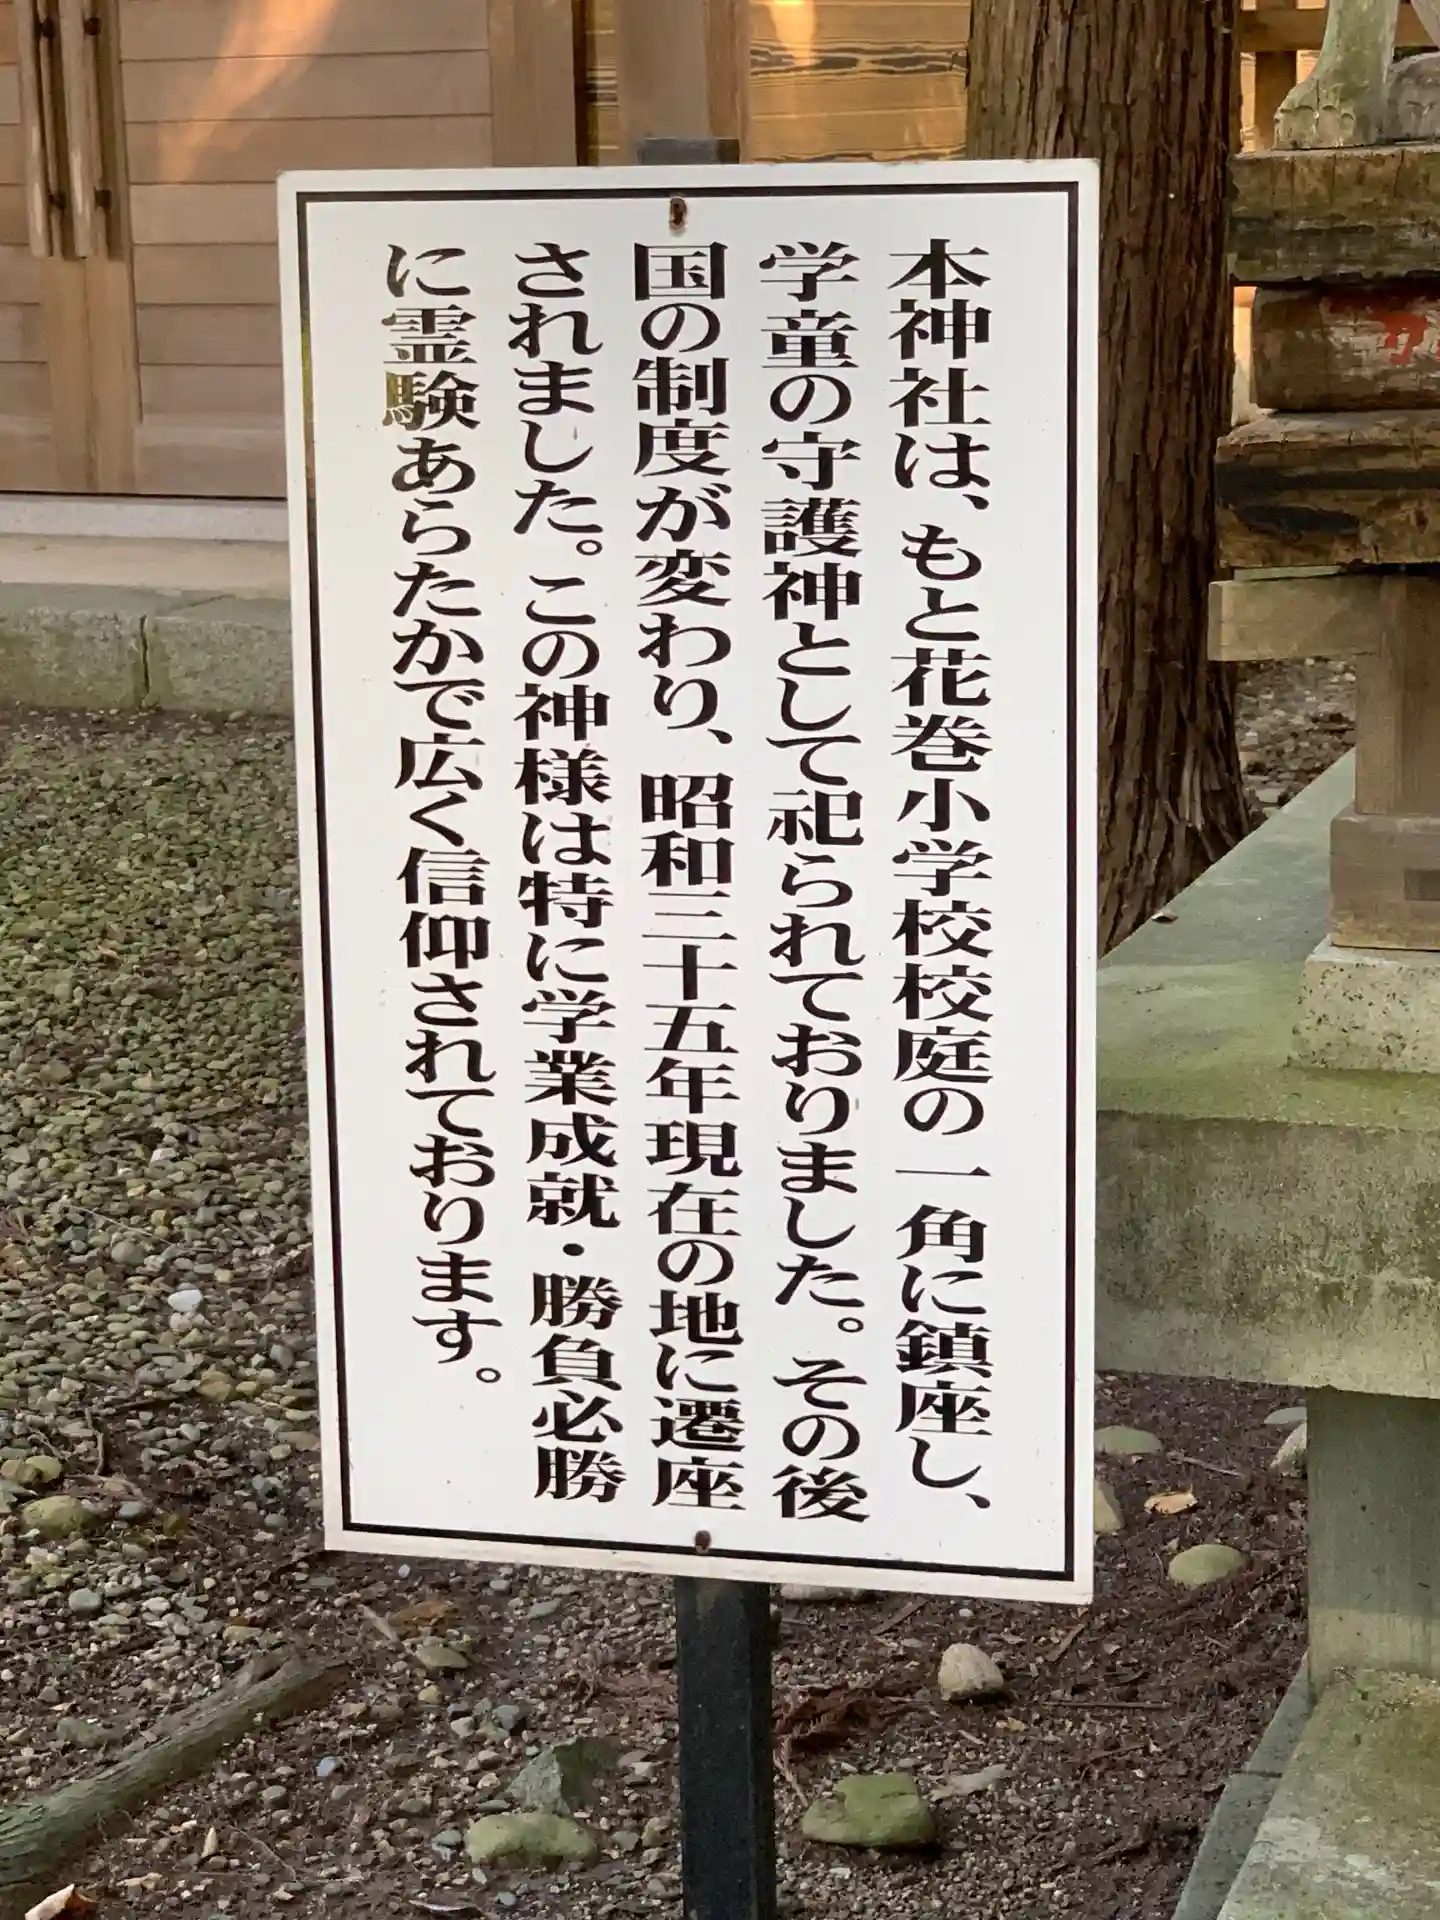 本神社は、もと花巻小学校校庭の一角に鎮座し、
学童の守護神として祀られておりました。その後
国の制度が変わり、昭和三十五年現在の地に遷座
されました。この神様は特に学業成就・勝負必勝
に霊験あらたかで広く信仰されております。